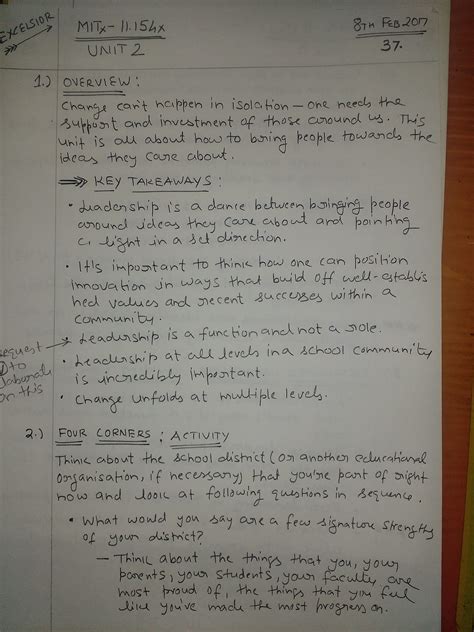 EXCELSIOR
MITx - 11.154x
UNIT 2
8TH FEB. 2017
37.
1.) OVERVIEW :
Change can't happen in isolation — one needs the
support and investment of those around us. This
unit is all about how to bring people towards the
ideas they care about.
KEY TAKEAWAYS :
• Leadership is a dance between bringing people
around ideas they care about and pointing
a light in a set direction.
• It's important to think how one can position
innovation in ways that build off well-establis
hed values and recent successes within a
community.
Leadership is a function and not a role.
request
to
elaborate
on this
• Leadership at all levels in a school community
is incredibly important.
• Change unfolds at multiple levels.
2.) FOUR CORNERS : ACTIVITY
Think about the school district (or another educational
organisation, if necessary) that you're part of right
now and look at following questions in sequence.
• What would you say are a few signature strengths
of your district?
— Think about the things that you, your
parents, your students, your faculty, are
most proud of, the things that you feel
like you've made the most progress on.